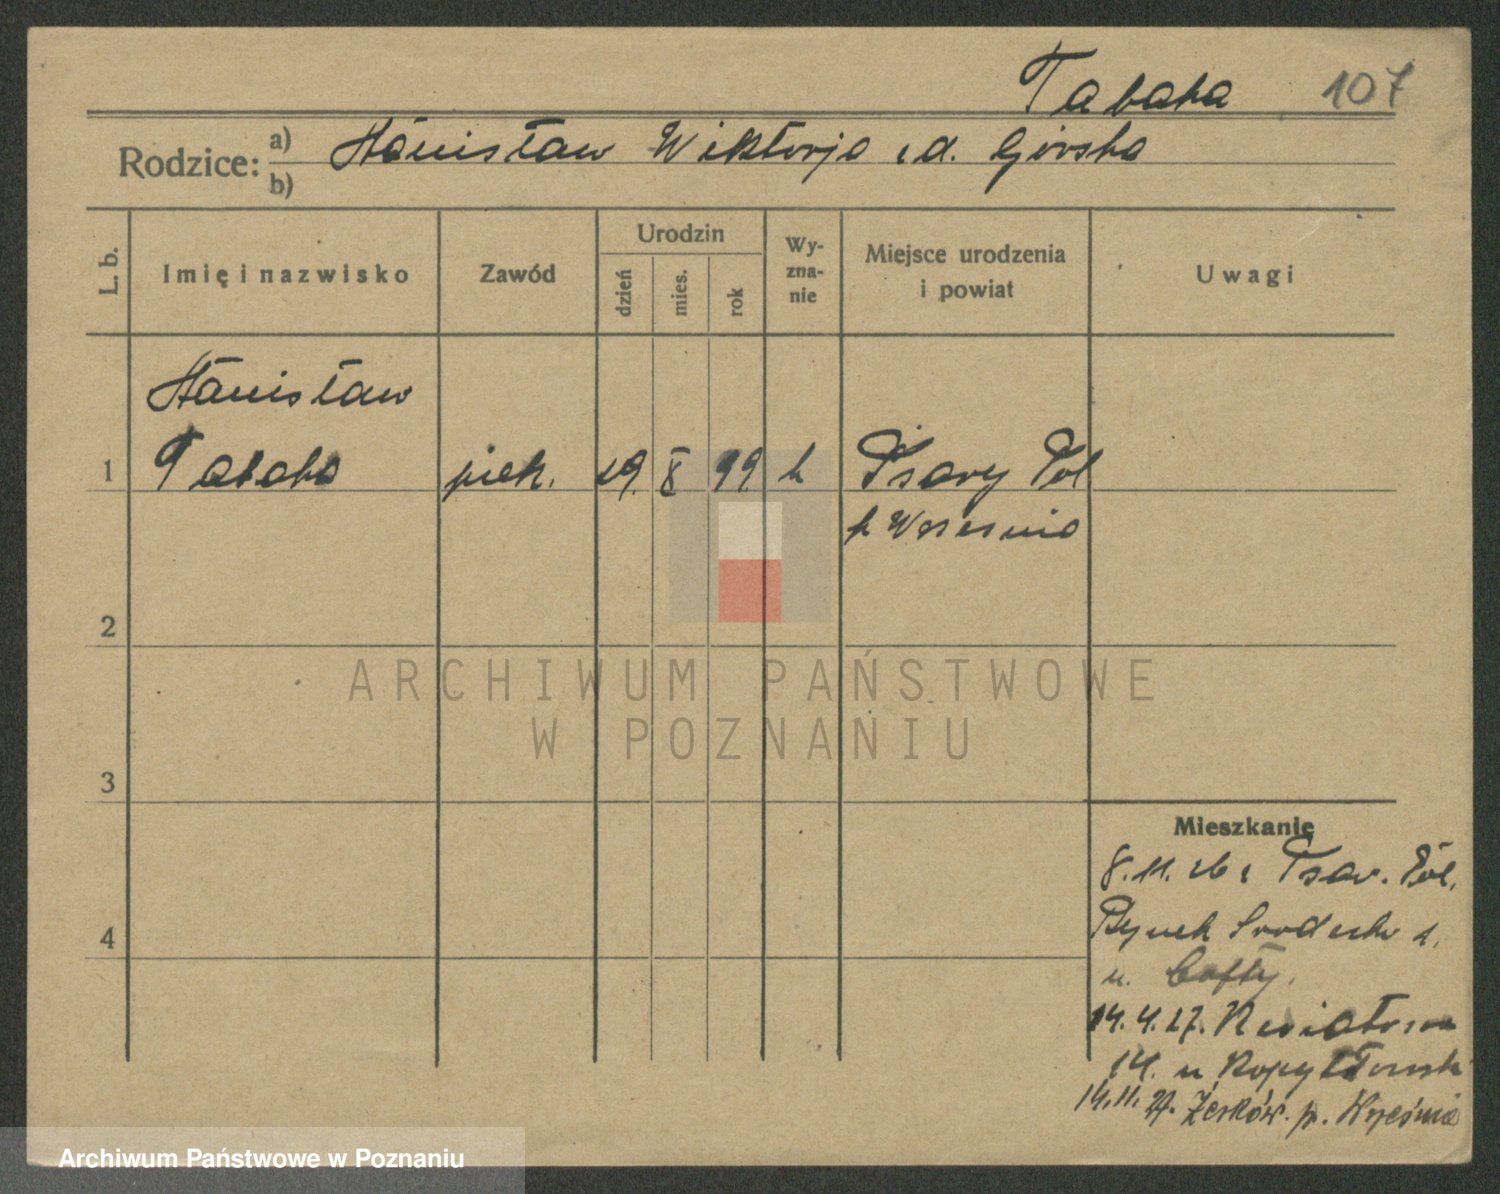 Tabaka 107
Rodzice: a) Stanisław Wiktorja z d. Górska
b)
L. b. Imię i nazwisko Zawód Urodzin dzień mies. rok Wy-zna-nie Miejsce urodzenia i powiat Uwagi
Stanisław
1 Tabaka piek. 19. X 99. k Psary Pol
p Września
2
ARCHIWUM PAŃSTWOWE
W POZNANIU
3
Mieszkanie
8.11.26 z Psar. Pol.
4 Rynek Srodecki 1.
u.
14.4.27. Kwiatowa
14. u
14.11. Żerków. p. Września
Archiwum Państwowe w Poznaniu